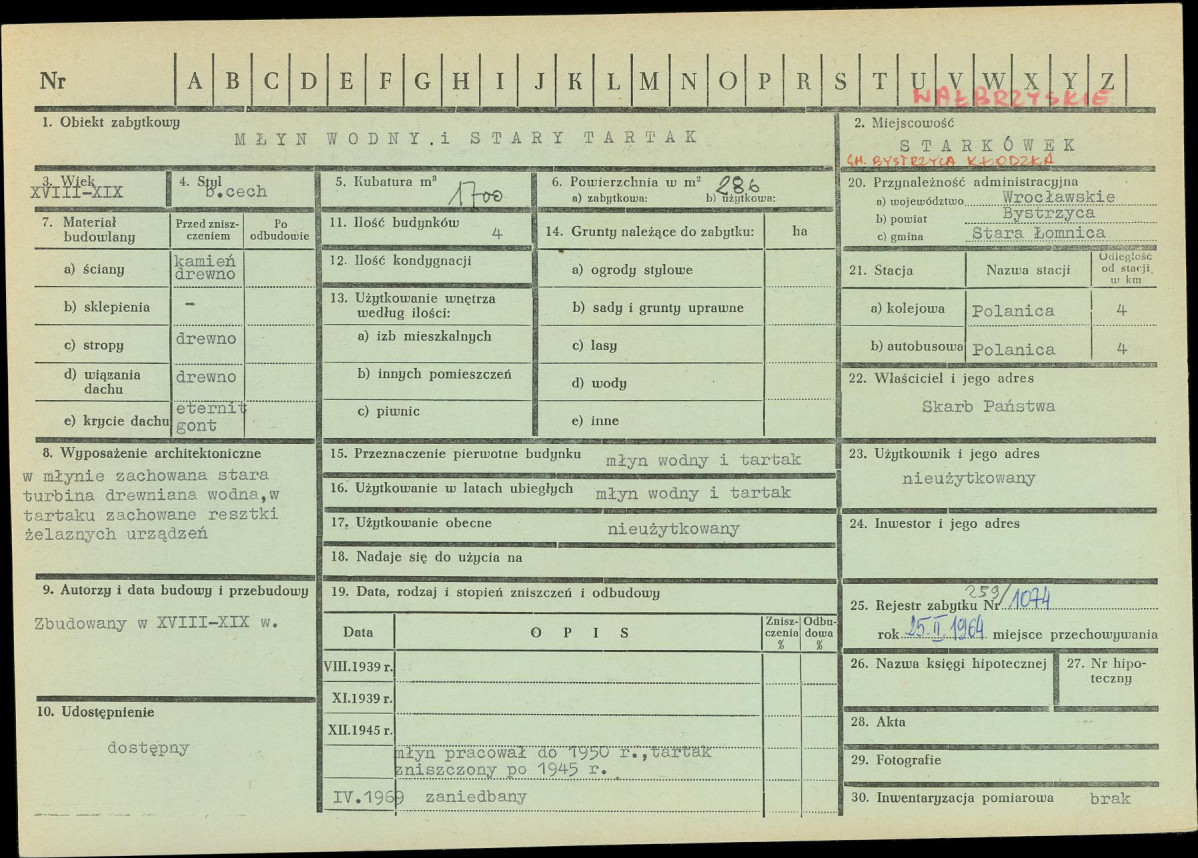 Nr A B C D E F G H I J K L M N O P R S T U V W X Y Z
WAŁBRZYSKIE
1. Obiekt zabytkowy
MŁYN WODNY.i STARY TARTAK
2. Miejscowość
STARKÓWEK
GM. BYSTRZYCA KŁODZKA
3. Wiek
XVIII-XIX
4. Styl
b.cech
5. Kubatura m³
1700
6. Powierzchnia w m² 286
a) zabytkowa: b) użytkowa:
7. Materiał budowlany
Przed znisz-
czeniem
Po
odbudowie
a) ściany
kamień
drewno
b) sklepienia –
c) stropy drewno
d) wiązania
dachu
drewno
e) krycie dachu
eternit
gont
8. Wyposażenie architektoniczne
w młynie zachowana stara
turbina drewniana wodna,w
tartaku zachowane resztki
żelaznych urządzeń
9. Autorzy i data budowy i przebudowy
Zbudowany w XVIII-XIX w.
10. Udostępnienie
dostępny
11. Ilość budynków 4
12. Ilość kondygnacji
13. Użytkowanie wnętrza
według ilości:
a) izb mieszkalnych
b) innych pomieszczeń
c) piwnic
14. Grunty należące do zabytku: ha
a) ogrody stylowe
b) sady i grunty uprawne
c) lasy
d) wody
e) inne
15. Przeznaczenie pierwotne budynku młyn wodny i tartak
16. Użytkowanie w latach ubiegłych młyn wodny i tartak
17. Użytkowanie obecne nieużytkowany
18. Nadaje się do użycia na
19. Data, rodzaj i stopień zniszczeń i odbudowy
Data OPIS
Znisz-
czenia
%
Odbu-
dowa
%
VIII.1939 r.
XI.1939 r.
XII.1945 r.
młyn pracował do 1950 r.,tartak
zniszczony po 1945 r.
IV.1969 zaniedbany
20. Przynależność administracyjna
a) województwo Wrocławskie
b) powiat Bystrzyca
c) gmina Stara Łomnica
21. Stacja Nazwa stacji
Odległość
od stacji
w km
a) kolejowa Polanica 4
b) autobusowa Polanica 4
22. Właściciel i jego adres
Skarb Państwa
23. Użytkownik i jego adres
nieużytkowany
24. Inwestor i jego adres
25. Rejestr zabytku Nr 259/1074
rok 25.II.1964 miejsce przechowywania
26. Nazwa księgi hipotecznej
27. Nr hipo-
teczny
28. Akta
29. Fotografie
30. Inwentaryzacja pomiarowa brak